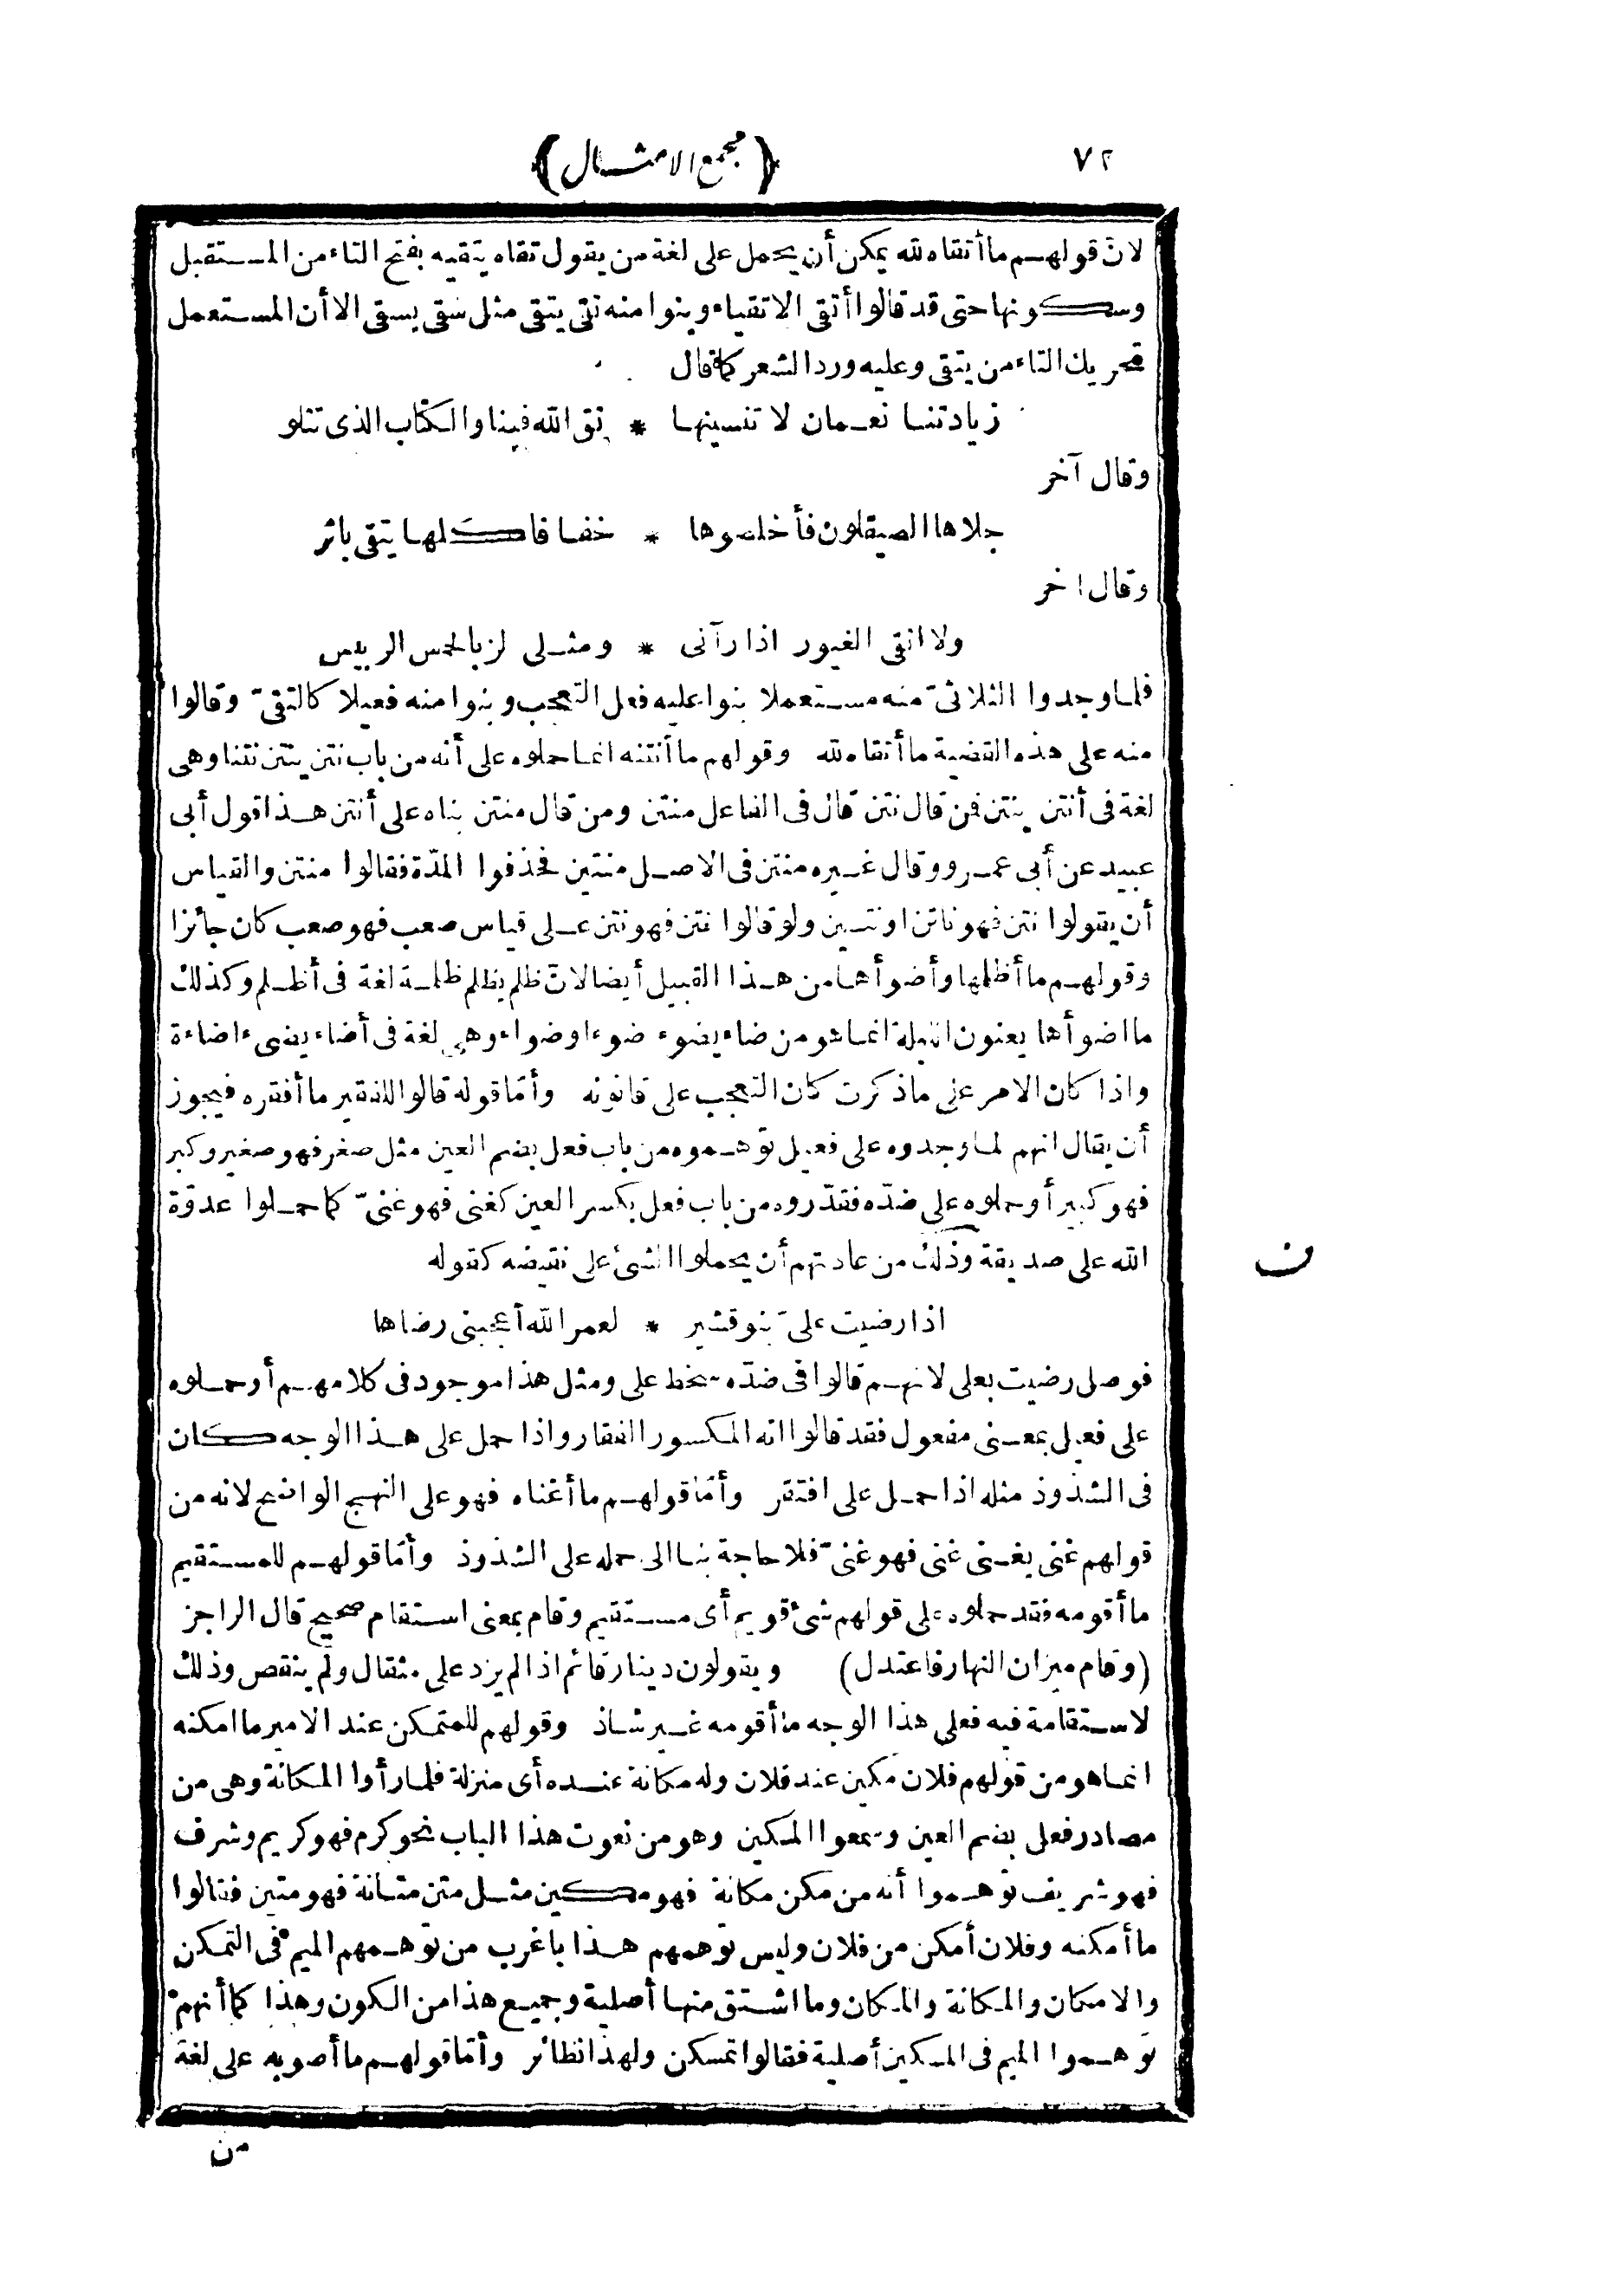 ٧٢
(مجمع الامثال)
لانّ قولهم ما أتقاه لله يمكن أن يحمل على لغة من يقول تقاه يتقيه بفتح التاء من المستقبل
وسكونها حتى قد قالوا أتقى الاتقياء وبنوا منه تقى يتقى مثل سقى يسقى الا أن المستعمل
تحريك التاء من يتقى وعليه ورد الشعر كما قال
زيادتنا نعمان لا تنسينها * تق الله فينا والكتاب الذى تتلو
وقال آخر
جلاها الصيقلون فأخلصوها * خفافا كلها يتقى باثر
وقال اخر
ولا اتقى الغيور اذا رآنى * ومثلى لز بالحمس الربيس
فلما وجدوا الثلاثىّ منه مستعملا بنوا عليه فعل التعجب وبنوا منه فعيلا كالتقىّ وقالوا
منه على هذه القضية ما أتقاه لله وقولهم ما أنتنه انما حملوه على أنه من باب نتن ينتن نتنا وهى
لغة فى أنتن ينتن فمن قال نتن قال فى الفاعل منتن ومن قال منتن بناه على أنتن هذا قول أبى
عبيد عن أبى عمرو وقال غيره منتن فى الاصل منتين فحذفوا المدّة فقالوا منتن والقياس
أن يقولوا نتن فهو ناتن او نتين ولو قالوا نتن فهو نتن على قياس صعب فهو صعب كان جائزا
وقولهم ما أظلمها وأضوأها من هذا القبيل أيضا لانّ ظلم يظلم ظلمة لغة فى أظلم وكذلك
ما اضوأها يعنون الليلة انما هو من ضاء يضوء ضوءا وضواء وهى لغة فى أضاء يضىء اضاءة
واذا كان الامر على ما ذكرت كان التعجب على قانونه وأمّا قوله قالوا للفقير ما أفقره فيجوز
أن يقال انهم لما وجدوه على فعيل توّهموه من باب فعل بضم العين مثل صغر فهو صغير وكبر
فهو كبير أو حملوه على ضدّه فقدّروه من باب فعل بكسر العين كغنى فهو غنىّ كما حملوا عدوّة
الله على صديقة وذلك من عادتهم أن يحملوا الشئ على نقيضه كقوله
ن
اذا رضيت علىّ بنو قشير * لعمر الله أعجبنى رضاها
فوصل رضيت بعلى لانهم قالوا فى ضدّه سخط على ومثل هذا موجود فى كلامهم أو حملوه
على فعيل بمعنى مفعول فقد قالوا انه المكسور الفقار واذا حمل على هذا الوجه كان
فى الشذوذ مثله اذا حمل على افتقر وأمّا قولهم ما أغناه فهو على النهج الواضح لانه من
قولهم غنى يغنى غنى فهو غنىّ فلا حاجة بنا الى حمله على الشذوذ وأمّا قولهم للمستقيم
ما أقومه فقد حملوه على قولهم شئ قويم أى مستقيم وقام بمعنى استقام صحيح قال الراجز
(وقام ميزان النهار فاعتدل) ويقولون دينار قائم اذا لم يزد على مثقال ولم ينقص وذلك
لاستقامة فيه فعلى هذا الوجه ما أقومه غير شاذ وقولهم للمتمكن عند الامير ما امكنه
انما هو من قولهم فلان مكين عند فلان وله مكانة عنده أى منزلة فلما رأوا المكانة وهى من
مصادر فعل بضم العين وسمعوا المكين وهو من نعوت هذا الباب نحو كرم فهو كريم وشرف
فهو شريف توّهموا أنه من مكن مكانة فهو مكين مثل متن متانة فهو متين فقالوا
ما أمكنه وفلان أمكن من فلان وليس توّهمهم هذا باغرب من توّهمهم الميم فى التمكن
والامكان والمكانة والمكان وما اشتق منها أصلية وجميع هذا من الكون وهذا كما أنهم
توّهموا الميم فى المسكين أصلية فقالوا تمسكن ولهذا نظائر وأمّا قولهم ما أصوبه على لغة
من